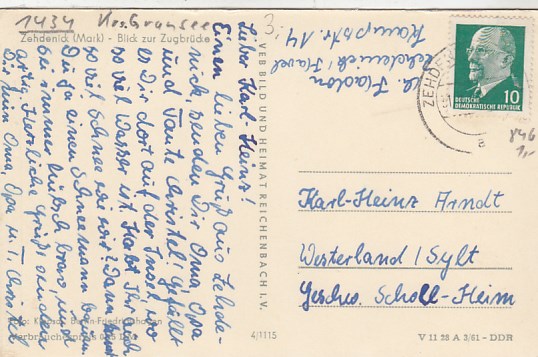 1434 Krs. Gransee
Zehdenick (Mark) - Blick zur Zugbrücke
Lieber Karl-Heinz!
Einen lieben Gruß aus Zehde-
nick, senden Dir Oma, Opa
und Tante Christel. Gefällt
es Dir dort auf der Insel, wo
so viel Wasser ist. Habt Ihr auch
so viel Schnee wie wir? Dann baut
Du ja einen Schneemann bauen.
Sei immer hübsch brav, und
artig. Herzliche Grüße senden
Dir Deine Oma, Opa u. T. Christel
Foto: Berlin-Friedrichshagen
Verbraucherpreis
VEB BILD UND HEIMAT REICHENBACH I. V.
4/1115
3.
Zehdenick/Havel
Kampstr. 14
ZEHDENICK
a
DEUTSCHE
DEMOKRATISCHE REPUBLIK
10
846
1,-
Karl-Heinz Arndt
Westerland/Sylt
Geschw. Scholl-Heim
V 11 28 A 3/61 - DDR